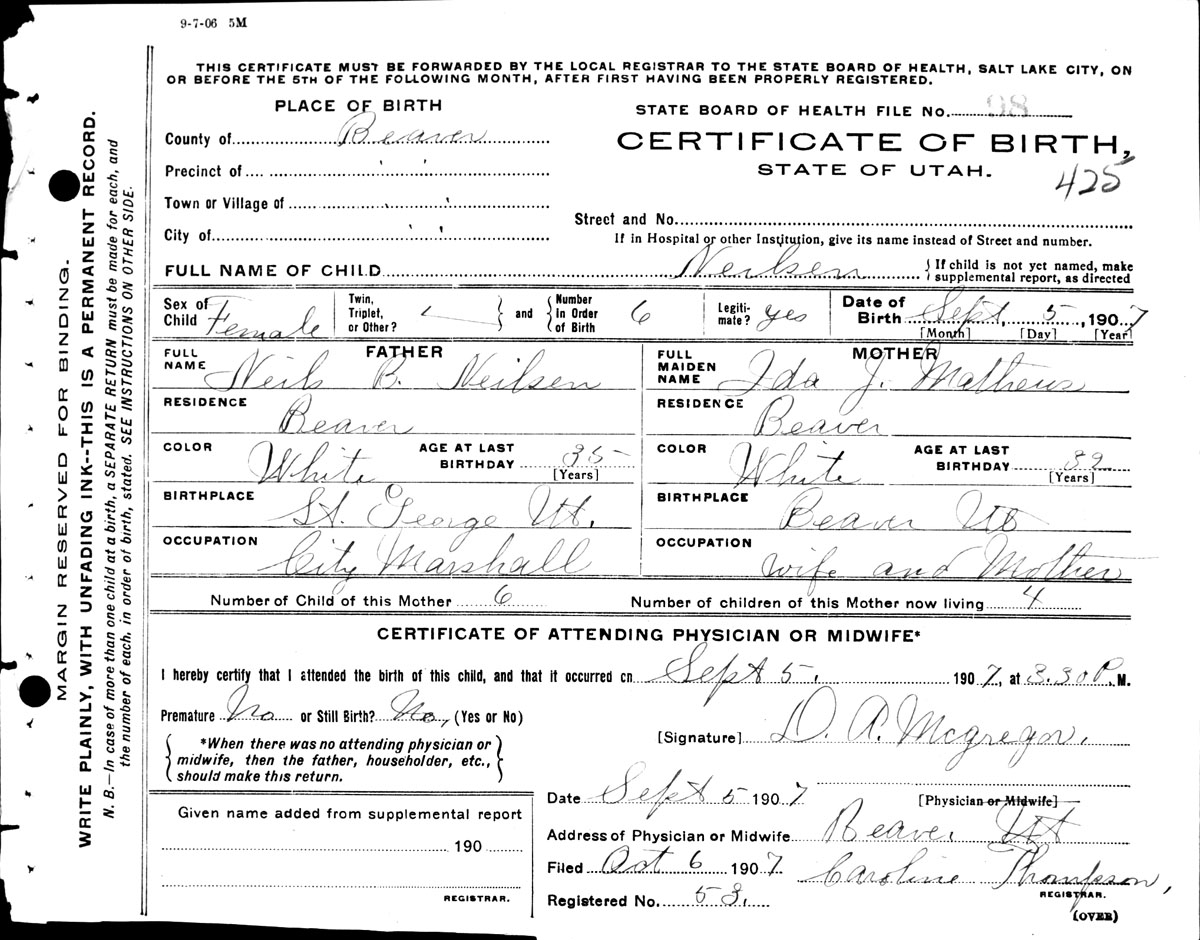 9-7-06 5M
THIS CERTIFICATE MUST BE FORWARDED BY THE LOCAL REGISTRAR TO THE STATE BOARD OF HEALTH, SALT LAKE CITY, ON
OR BEFORE THE 5TH OF THE FOLLOWING MONTH, AFTER FIRST HAVING BEEN PROPERLY REGISTERED.
PLACE OF BIRTH
County of Beaver
Precinct of " "
Town or Village of " "
City of " "
STATE BOARD OF HEALTH FILE No. 98
CERTIFICATE OF BIRTH,
STATE OF UTAH.
425
Street and No.
If in Hospital or other Institution, give its name instead of Street and number.
FULL NAME OF CHILD Neilsen { If child is not yet named, make
supplemental report, as directed
Sex of Child Female
Twin, Triplet, or Other? } and { Number in Order of Birth 6
Legiti-mate? yes
Date of Birth Sept 5, 1907
[Month] [Day] [Year]
FATHER
FULL NAME Neils B. Neilsen
RESIDENCE Beaver
COLOR White AGE AT LAST BIRTHDAY 35
[Years]
BIRTHPLACE St. George Ut.
OCCUPATION City Marshall
MOTHER
FULL MAIDEN NAME Ida J. Mathews
RESIDENCE Beaver
COLOR White AGE AT LAST BIRTHDAY 32
[Years]
BIRTHPLACE Beaver Ut
OCCUPATION wife and Mother
Number of Child of this Mother 6 Number of children of this Mother now living 4
CERTIFICATE OF ATTENDING PHYSICIAN OR MIDWIFE*
I hereby certify that I attended the birth of this child, and that it occurred on Sept 5. 1907, at 3.30 P. M.
Premature No or Still Birth? No, (Yes or No)
{ *When there was no attending physician or
midwife, then the father, householder, etc.,
should make this return. }
[Signature] D. A. Mcgregor.
[Physician or Midwife]
Given name added from supplemental report
190
REGISTRAR.
Date Sept 5 1907
Address of Physician or Midwife Beaver Ut
Filed Oct 6 1907 Caroline Thompson,
REGISTRAR.
Registered No. 53.
(OVER)
MARGIN RESERVED FOR BINDING.
WRITE PLAINLY, WITH UNFADING INK--THIS IS A PERMANENT RECORD.
N. B.—In case of more than one child at a birth, a SEPARATE RETURN must be made for each, and
the number of each, in order of birth, stated. SEE INSTRUCTIONS ON OTHER SIDE.